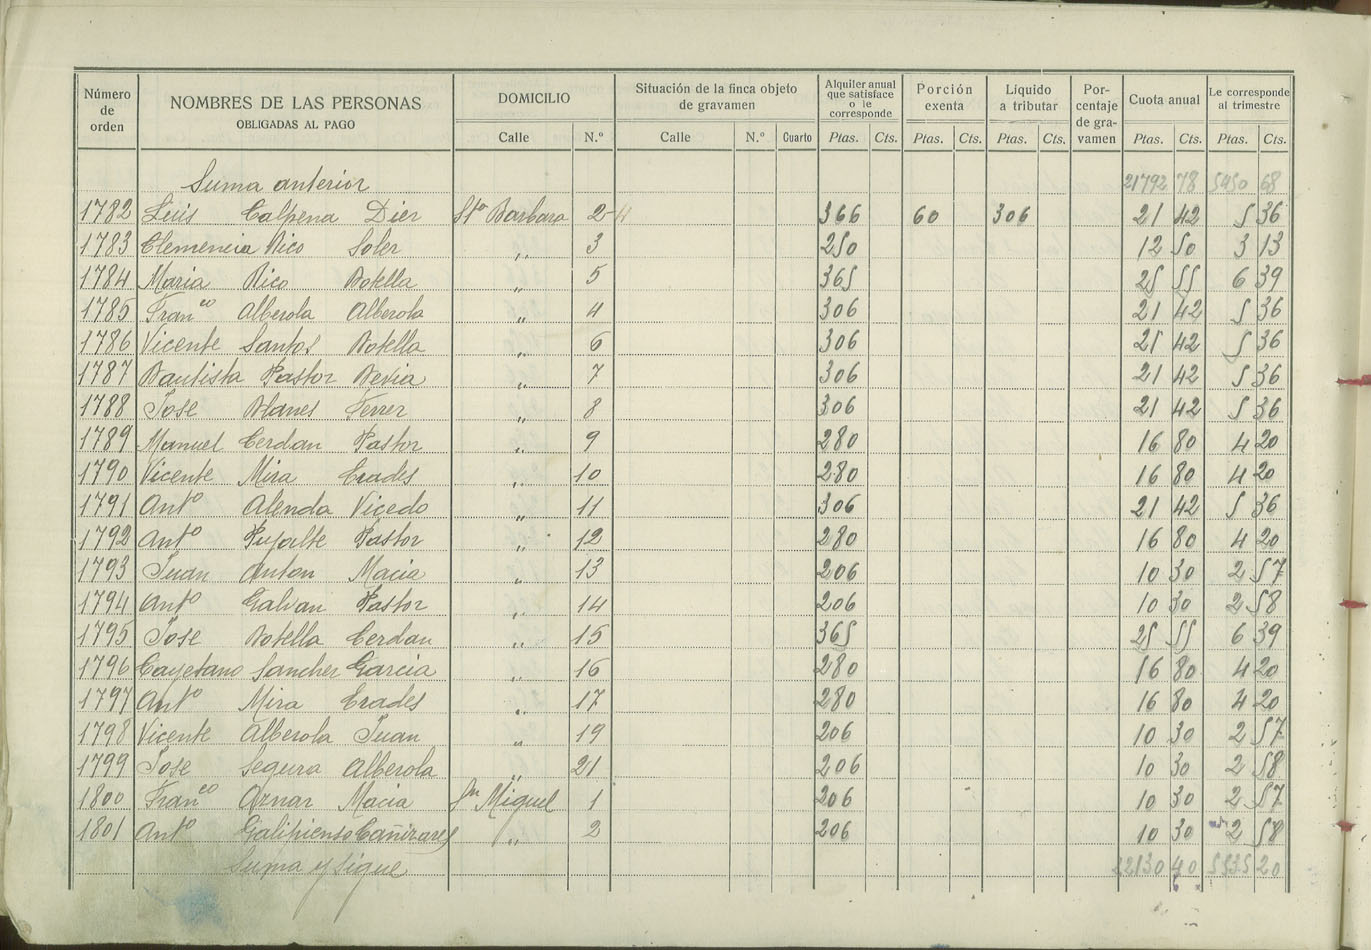 Número de orden NOMBRES DE LAS PERSONAS OBLIGADAS AL PAGO DOMICILIO Situación de la finca objeto de gravamen Alquiler anual que satisface o le corresponde Porción exenta Líquido a tributar Porcentaje de gravamen Cuota anual Le corresponde al trimestre
Calle N.º Calle N.º Cuarto Ptas. Cts. Ptas. Cts. Ptas. Cts. Ptas. Cts. Ptas. Cts.
Suma anterior 21792 78 5450 68
1782 Luis Calpena Dier Sta Barbara 2 366 60 306 21 42 5 36
1783 Clemencia Rico Soler ,, 3 250 12 50 3 13
1784 Maria Rico Botella ,, 5 365 25 55 6 39
1785 Franco Alberola Alberola ,, 4 306 21 42 5 36
1786 Vicente Santos Botella ,, 6 306 21 42 5 36
1787 Bautista Pastor Bevia ,, 7 306 21 42 5 36
1788 Jose Blanes Ferrer ,, 8 306 21 42 5 36
1789 Manuel Cerdan Pastor ,, 9 280 16 80 4 20
1790 Vicente Mira Crades ,, 10 280 16 80 4 20
1791 Anto Alenda Vicedo ,, 11 306 21 42 5 36
1792 Anto Pujalte Pastor ,, 12 280 16 80 4 20
1793 Juan Anton Macia ,, 13 206 10 30 2 57
1794 Anto Galvan Pastor ,, 14 206 10 30 2 58
1795 Jose Botella Cerdan ,, 15 365 25 55 6 39
1796 Cayetano Sancher Garcia ,, 16 280 16 80 4 20
1797 Anto Mira Crades ,, 17 280 16 80 4 20
1798 Vicente Alberola Juan ,, 19 206 10 30 2 57
1799 Jose Segura Alberola ,, 21 206 10 30 2 58
1800 Franco Aznar Macia Sn Miguel 1 206 10 30 2 57
1801 Anto Galipienso Cañizares ,, 2 206 10 30 2 58
Suma y sigue 22130 40 5535 20